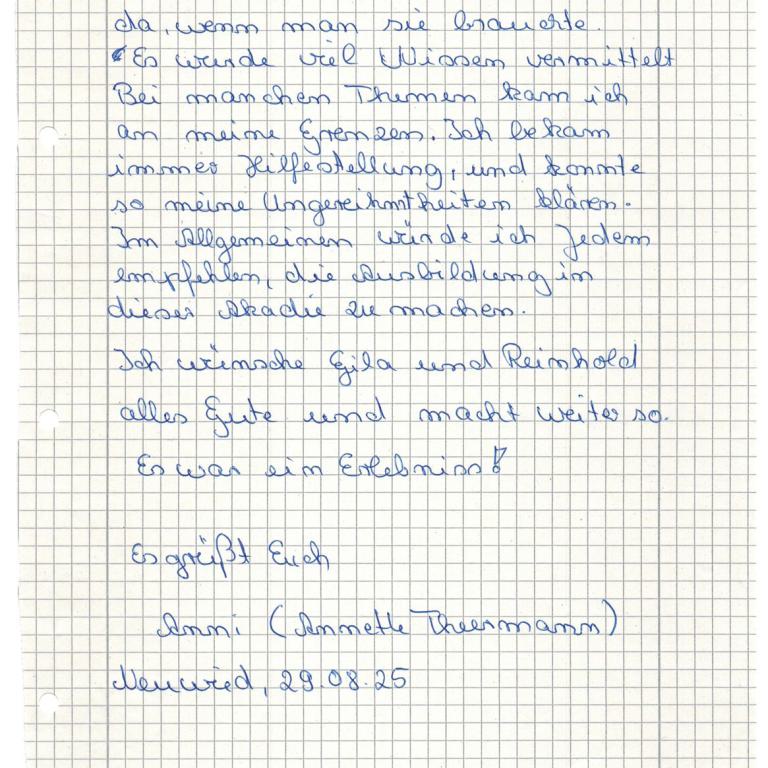 da, wenn man sie brauchte.
Es wurde viel Wissen vermittelt
Bei manchen Themen kam ich
an meine Grenzen. Ich bekam
immer Hilfestellung, und konnte
so meine Ungereihmtheiten klären.
Im Allgemeinen würde ich Jedem
empfehlen, die Ausbildung in
dieser Akadie zu machen.
Ich wünsche Gila und Reinhold
alles Gute und macht weiter so.
Es war ein Erlebniss!
Es grüßt Euch
Anni (Annette Theermann)
Neuwied, 29.08.25